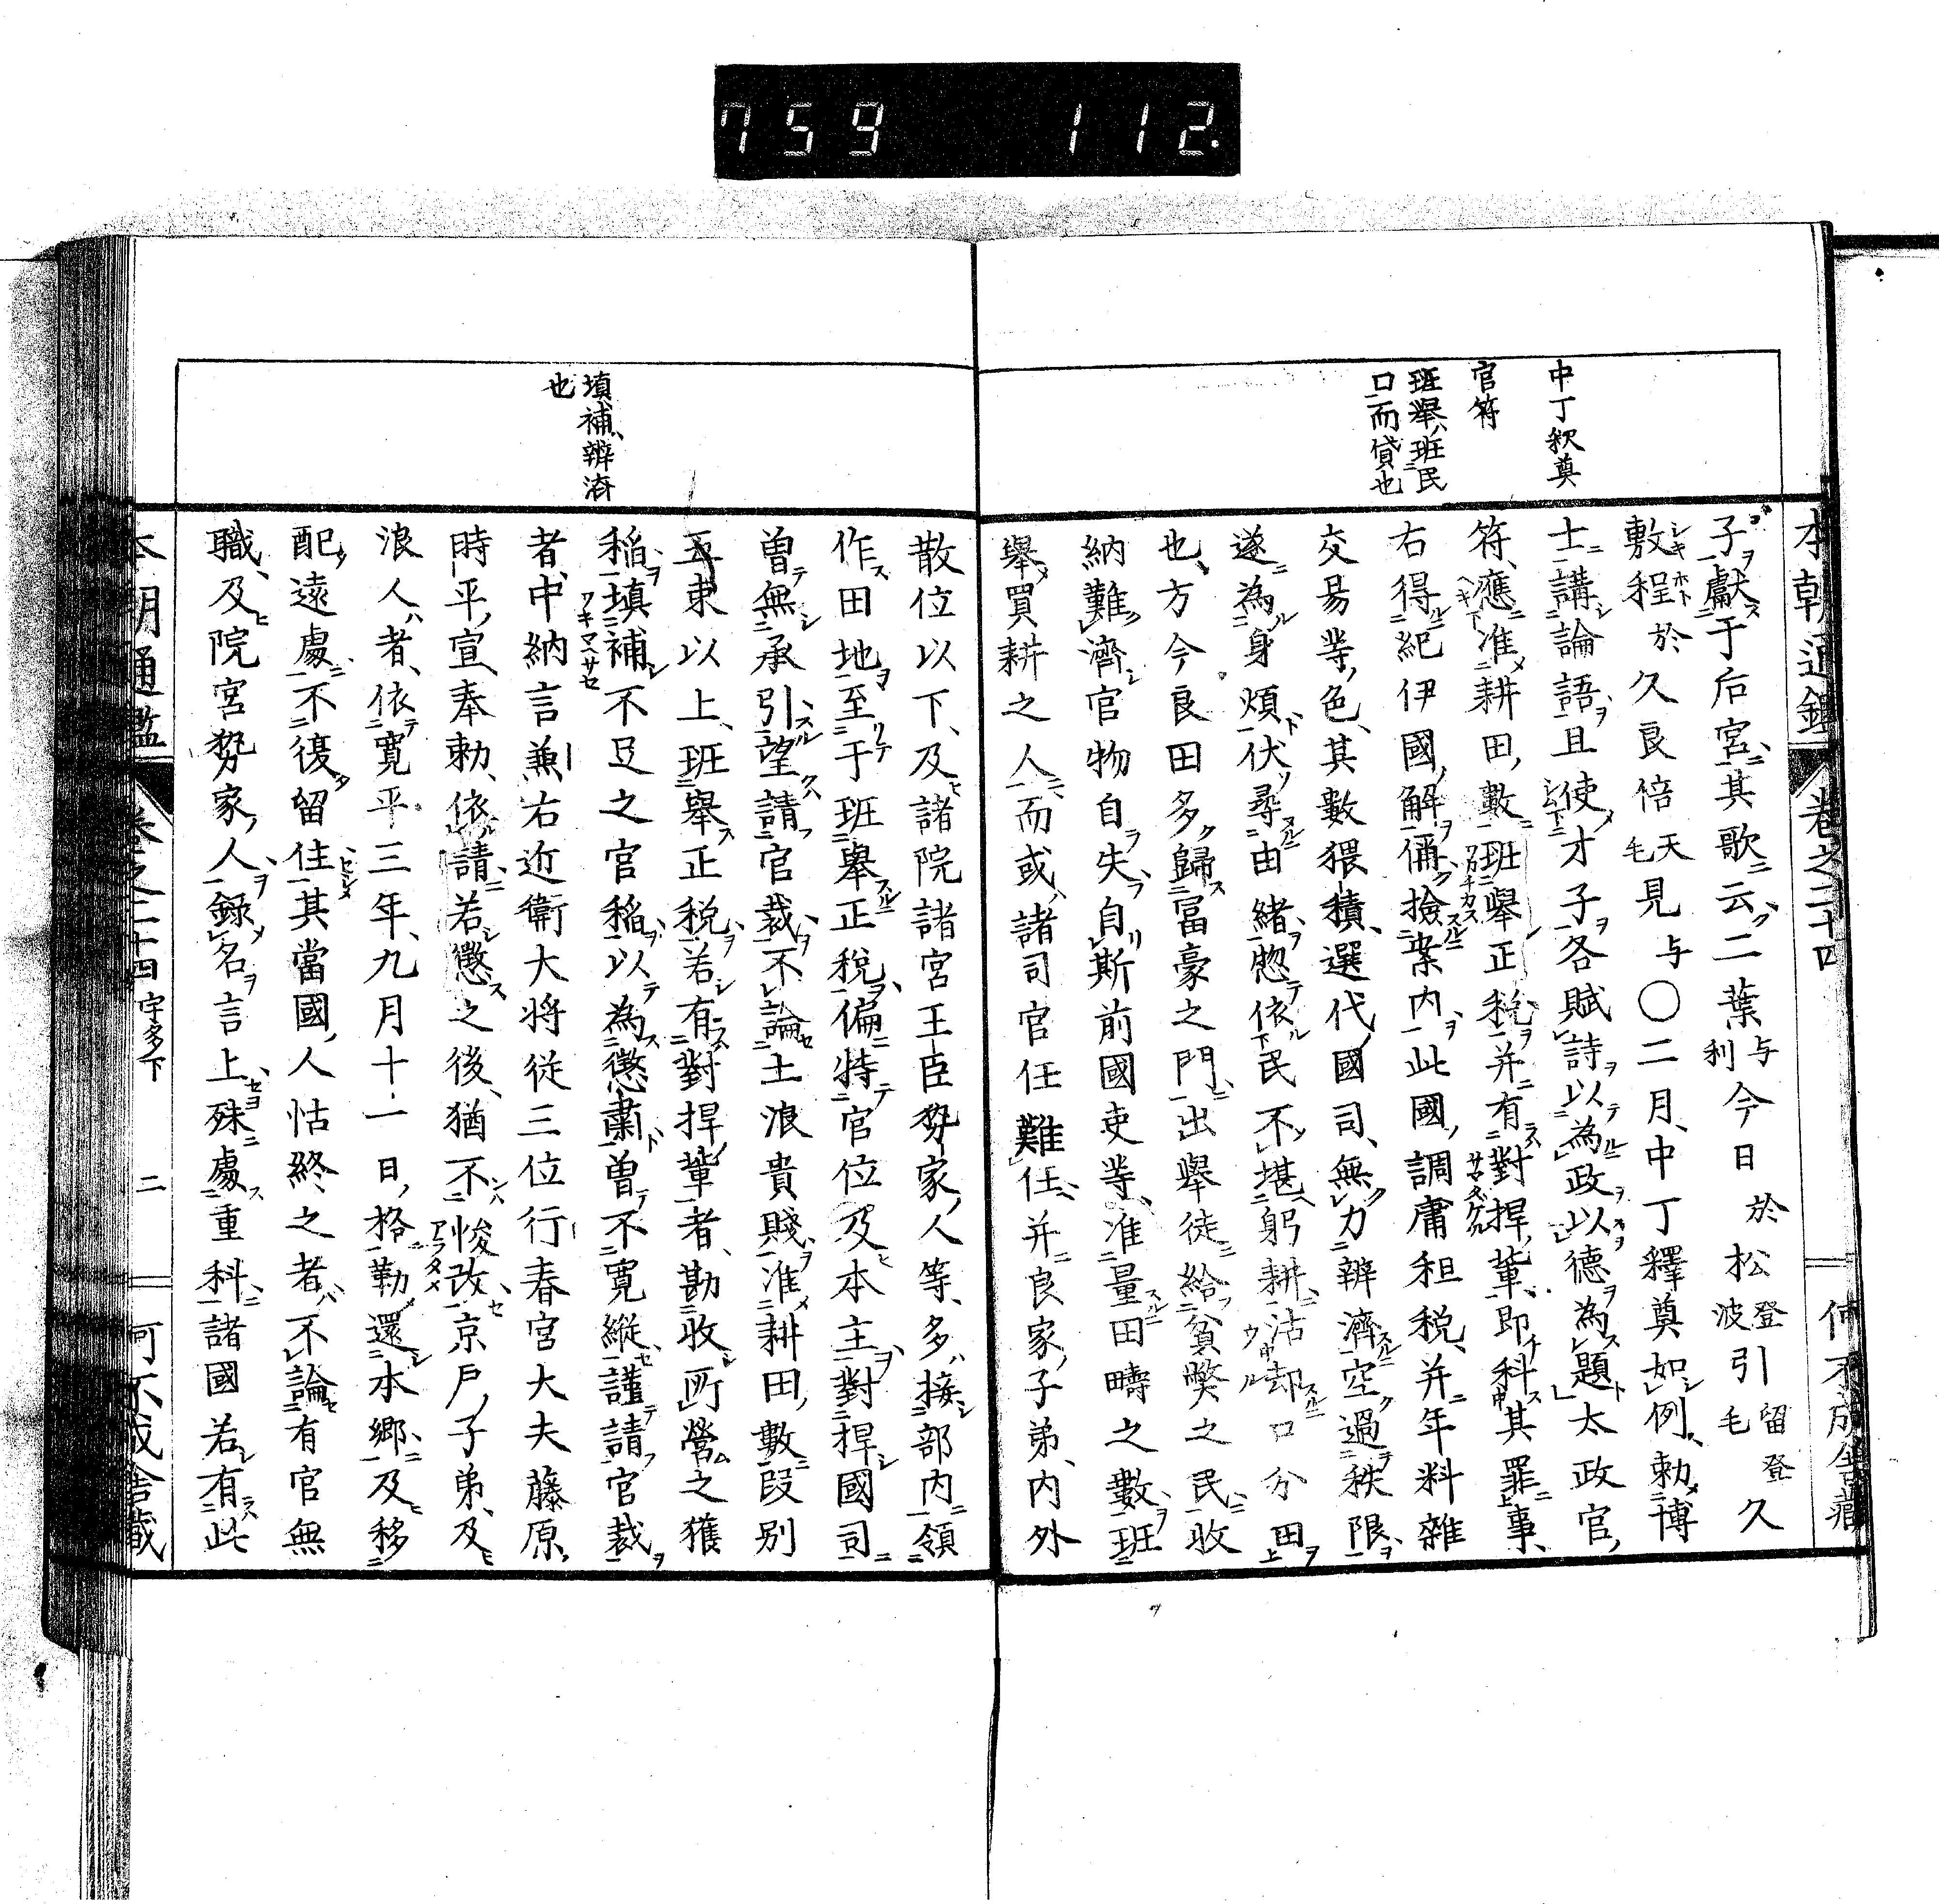 759 112.
本朝通鑑 巻之二十四
何不成舎蔵
中丁釈奠
官符
班舉、班民
口而貸也
子獻于后宮、其歌云、二葉与利今日於松波登引毛留登久
敷程於久良倍天毛見与〇二月、中丁釋奠如例、勅博
士講論語、且使才子各賦詩、以為政以德為題、太政官
符、應准耕田數班舉正税、并有對捍輩、即科其罪事、
右得紀伊國解偁、撿案内、此國調庸租税、并年料雜
交易等色、其數猥積、選代國司、無力辨濟、空過秩限、
遂為身煩、伏尋由緒、惣依民不堪躬耕、沽却口分田
也、方今良田多歸冨豪之門、出舉徒給貧弊之民、收
納難濟、官物自失、自斯前國吏等、准量田疇之數、班
舉買耕之人、而或諸司官任難任、并良家子弟、内外
填補、辨済
也
散位以下、及諸院諸宮王臣勢家人等、多接部内、領
作田地、至于班舉正税、偏特官位及本主、對捍國司、
曽無承引、望請官裁、不論土浪貴賤、准耕田數、段別
五束以上、班舉正税、若有對捍輩者、勘收所營之獲
稲、填補不足之官稲、以為懲肅、曽不寛縱、謹請官裁
者、中納言兼右近衛大将従三位行春宮大夫藤原
時平宣、奉勅、依請、若懲之後、猶不悛改、京戸子弟、及
浪人者、依寛平三年、九月十一日格、勒還本郷、及移
配遠處、不復留住、其當國人怙終之者、不論有官無
職、及院宮勢家人、録名言上、殊處重科、諸國若有此
本朝通鑑 巻之二十四 宇多下 二 何不成舎蔵